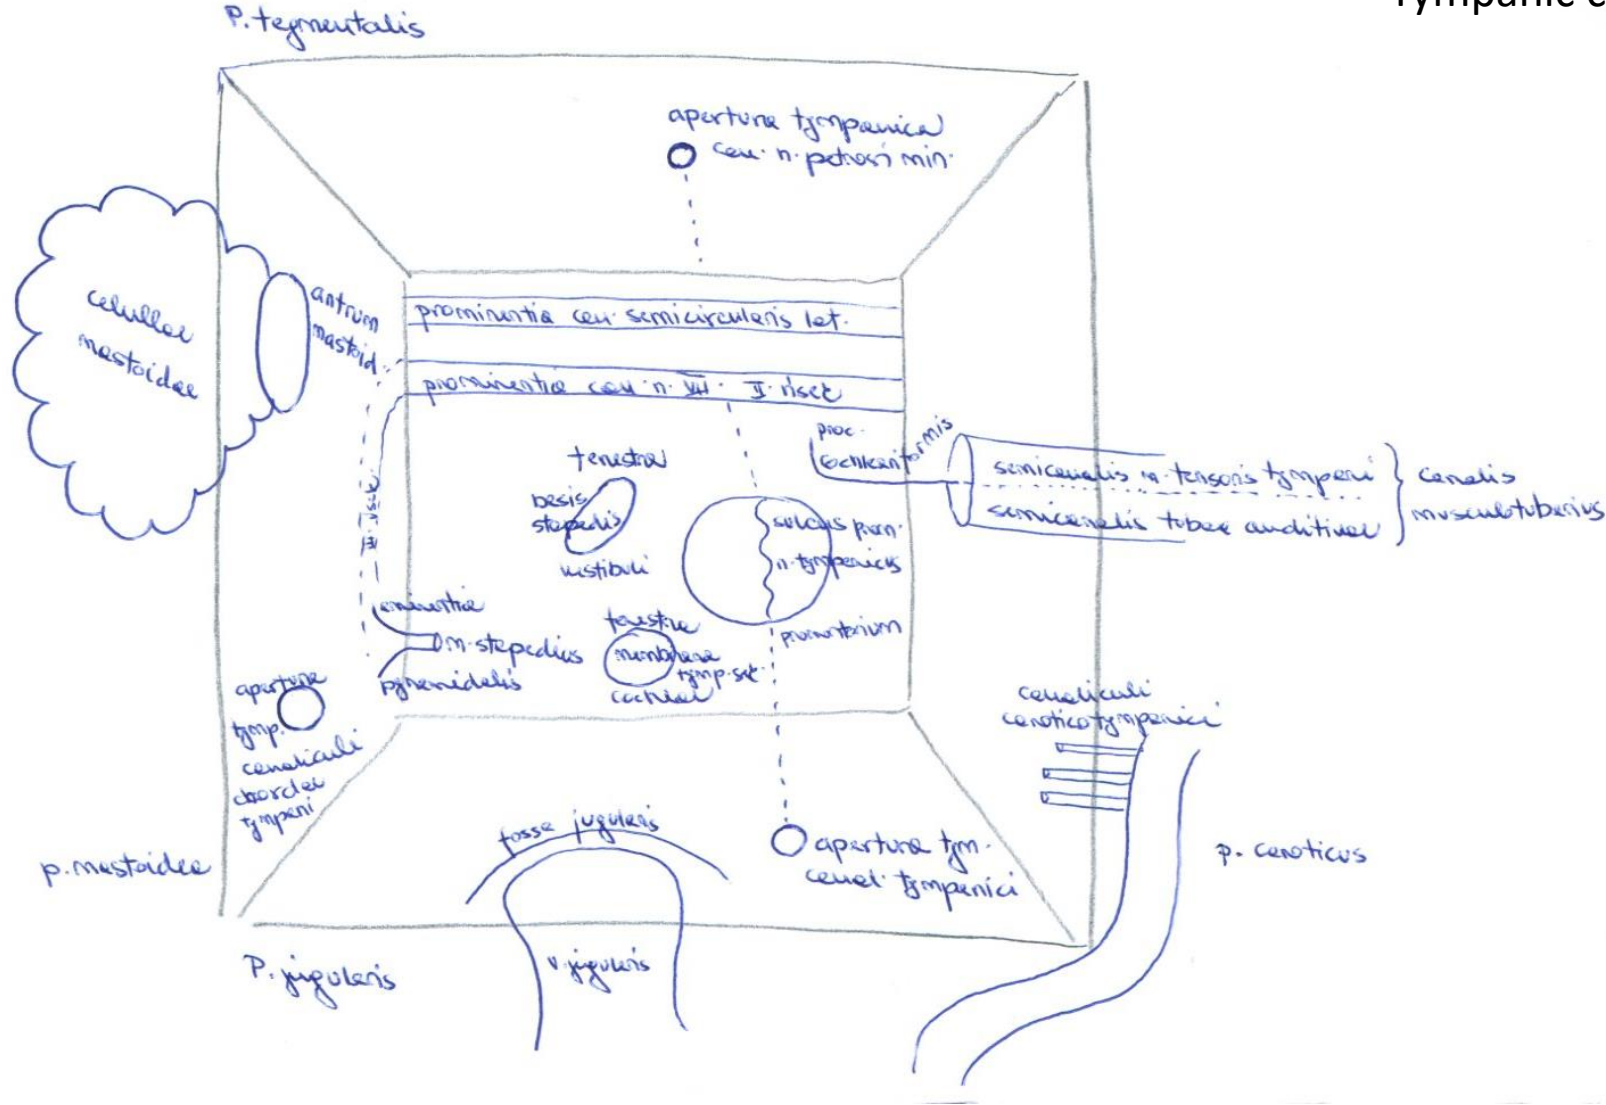 Tympanic c
P. tegmentalis
apertura tympanica
can. n. petrosi min.
celullae
mastoidae
antrum
mastoid.
prominentia can. semicircularis lat.
prominentia can. n. VII. II. úsek
proc.
cochleariformis
semicanalis m. tensoris tympani
semicanalis tubae auditivae
canalis
musculotubarius
fenestra
basis
stapedis
vestibuli
sulcus prom.
n. tympanicus
promontorium
eminentia
m. stapedius
pyramidalis
fenestra
membrana
tymp. sec.
cochleae
apertura
tymp.
canaliculi
chordae
tympani
canaliculi
caroticotympanici
fossa jugularis
apertura tym.
canal. tympanici
p. mastoidea
p. caroticus
P. jugularis
v. jugularis